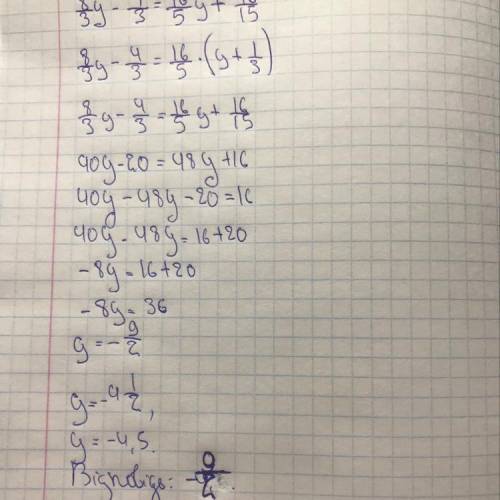 8/3 y - 4/3 = 16/5 y + 16/15
8/3 y - 4/3 = 16/5 · (y + 1/3)
8/3 y - 4/3 = 16/5 y + 16/15
40y - 20 = 48y + 16
40y - 48y - 20 = 16
40y - 48y = 16 + 20
-8y = 16 + 20
-8y = 36
y = - 9/2
y = -4 1/2,
y = -4,5.
Відповідь: - 9/2.